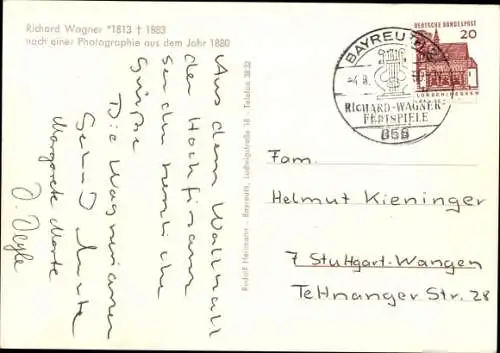 Richard Wagner *1813 † 1883
nach einer Photographie aus dem Jahr 1880
Aus dem Walhall
der Hochfinanz
senden herzliche
Grüsse
Die Wagnerianer
Margarete
Rudolf Heilmann - Bayreuth, Ludwigstraße 18 - Telefon 3832
BAYREUTH
RICHARD-WAGNER-
FESTSPIELE
858
DEUTSCHE BUNDESPOST
20
LORSCH/HESSEN
Fam.
Helmut Kieninger
7 Stuttgart-Wangen
Tettnanger Str. 28